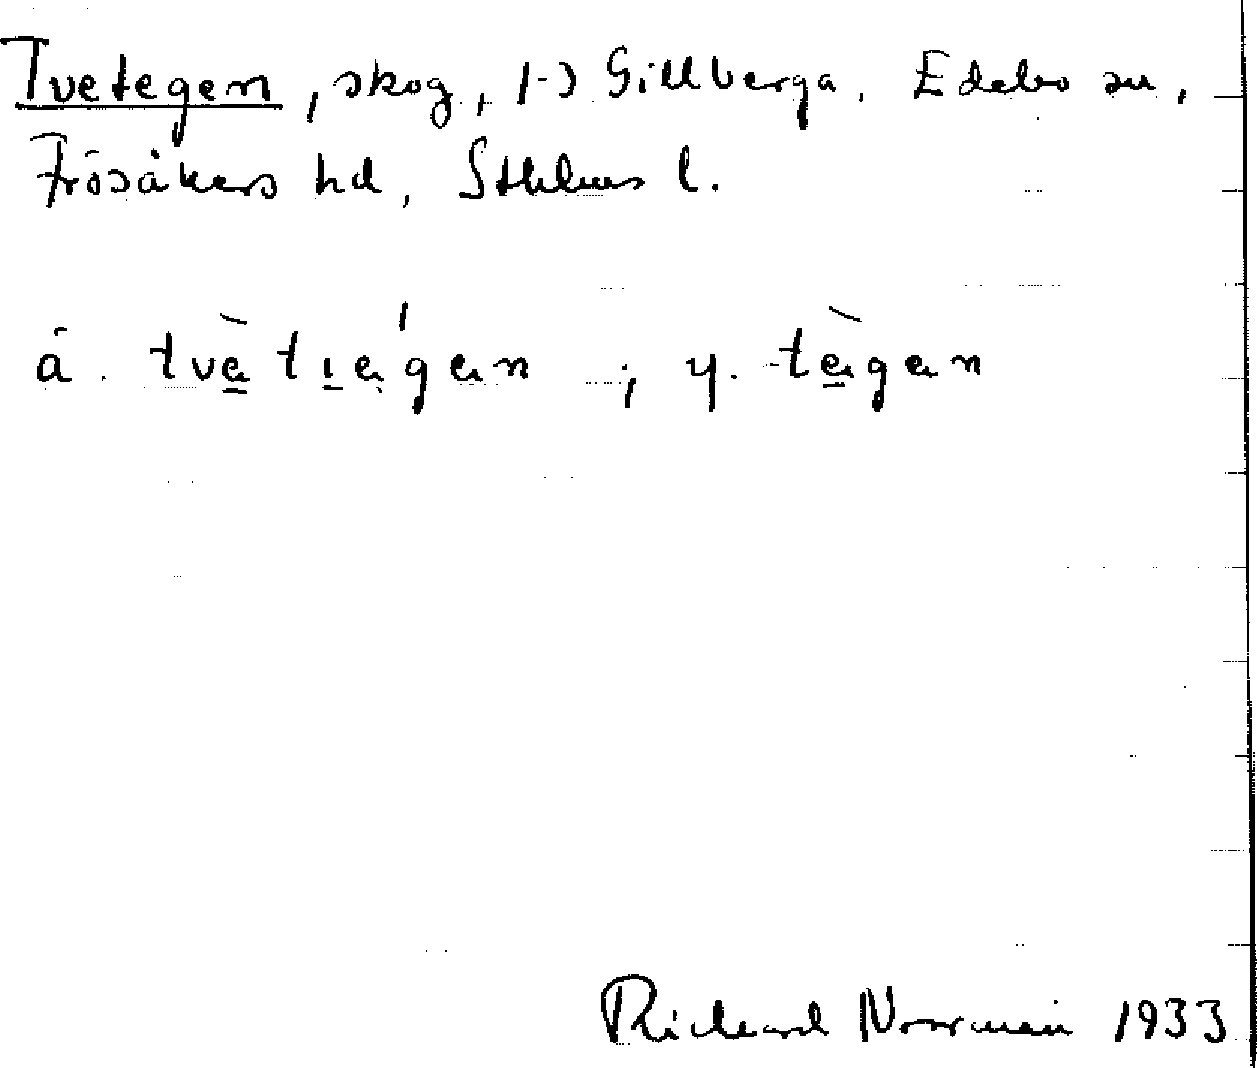 Tvetegen, skog, i Gillberga. Edebo sn,
Frösåkers hd, Sthlms l.
ä. tvètıegen ; y. tègen
Richard Norrman 1933